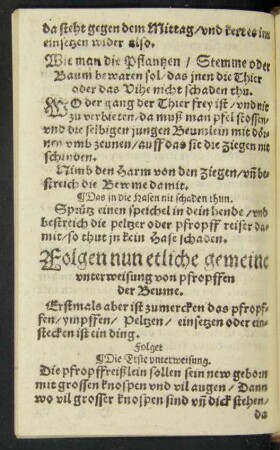 da steht gegen dem Mittag/ vnd kert es im
einsetzen wider also.
Wie man die Pflantzen / Stemme oder
Baum bewaren sol/ das jnen die Thier
oder das Vihe nicht schaden thu.
WO der gang der Thier frey ist/ vnd nit
zu verbieten/ da muß man pfel stossen/
vnd die selbigen jungen Beumlein mit dör
nen vmb zeunen/ auff das sie die Ziegen nit
schinden.
Nimb den Harm von den Ziegen/ vñ be
streich die Bewme damit.
¶ Das jn die Hasen nit schaden thun.
Sprütz einen speichel in dein hende/ vnd
bestreich die peltzer oder pfropff reiser da
mit/ so thut jn kein Hase schaden.
Folgen nun etliche gemeine
vnterweisung von pfropffen
der Beume.
Erstmals aber ist zu mercken das pfropf-
fen/ ympffen/ Peltzen/ einsetzen oder ein
stecken ist ein ding.
Folget
¶ Die Erste vnterweisung.
Die pfropffreißlein sollen sein new geborn
mit grossen knospen vnd vil augen/ Dann
wo vil grosser knospen sind vñ dick stehen/
da